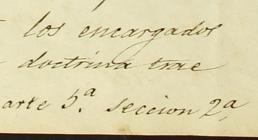 los encargados
doctrina trae
arte 5.ª seccion 2ª,